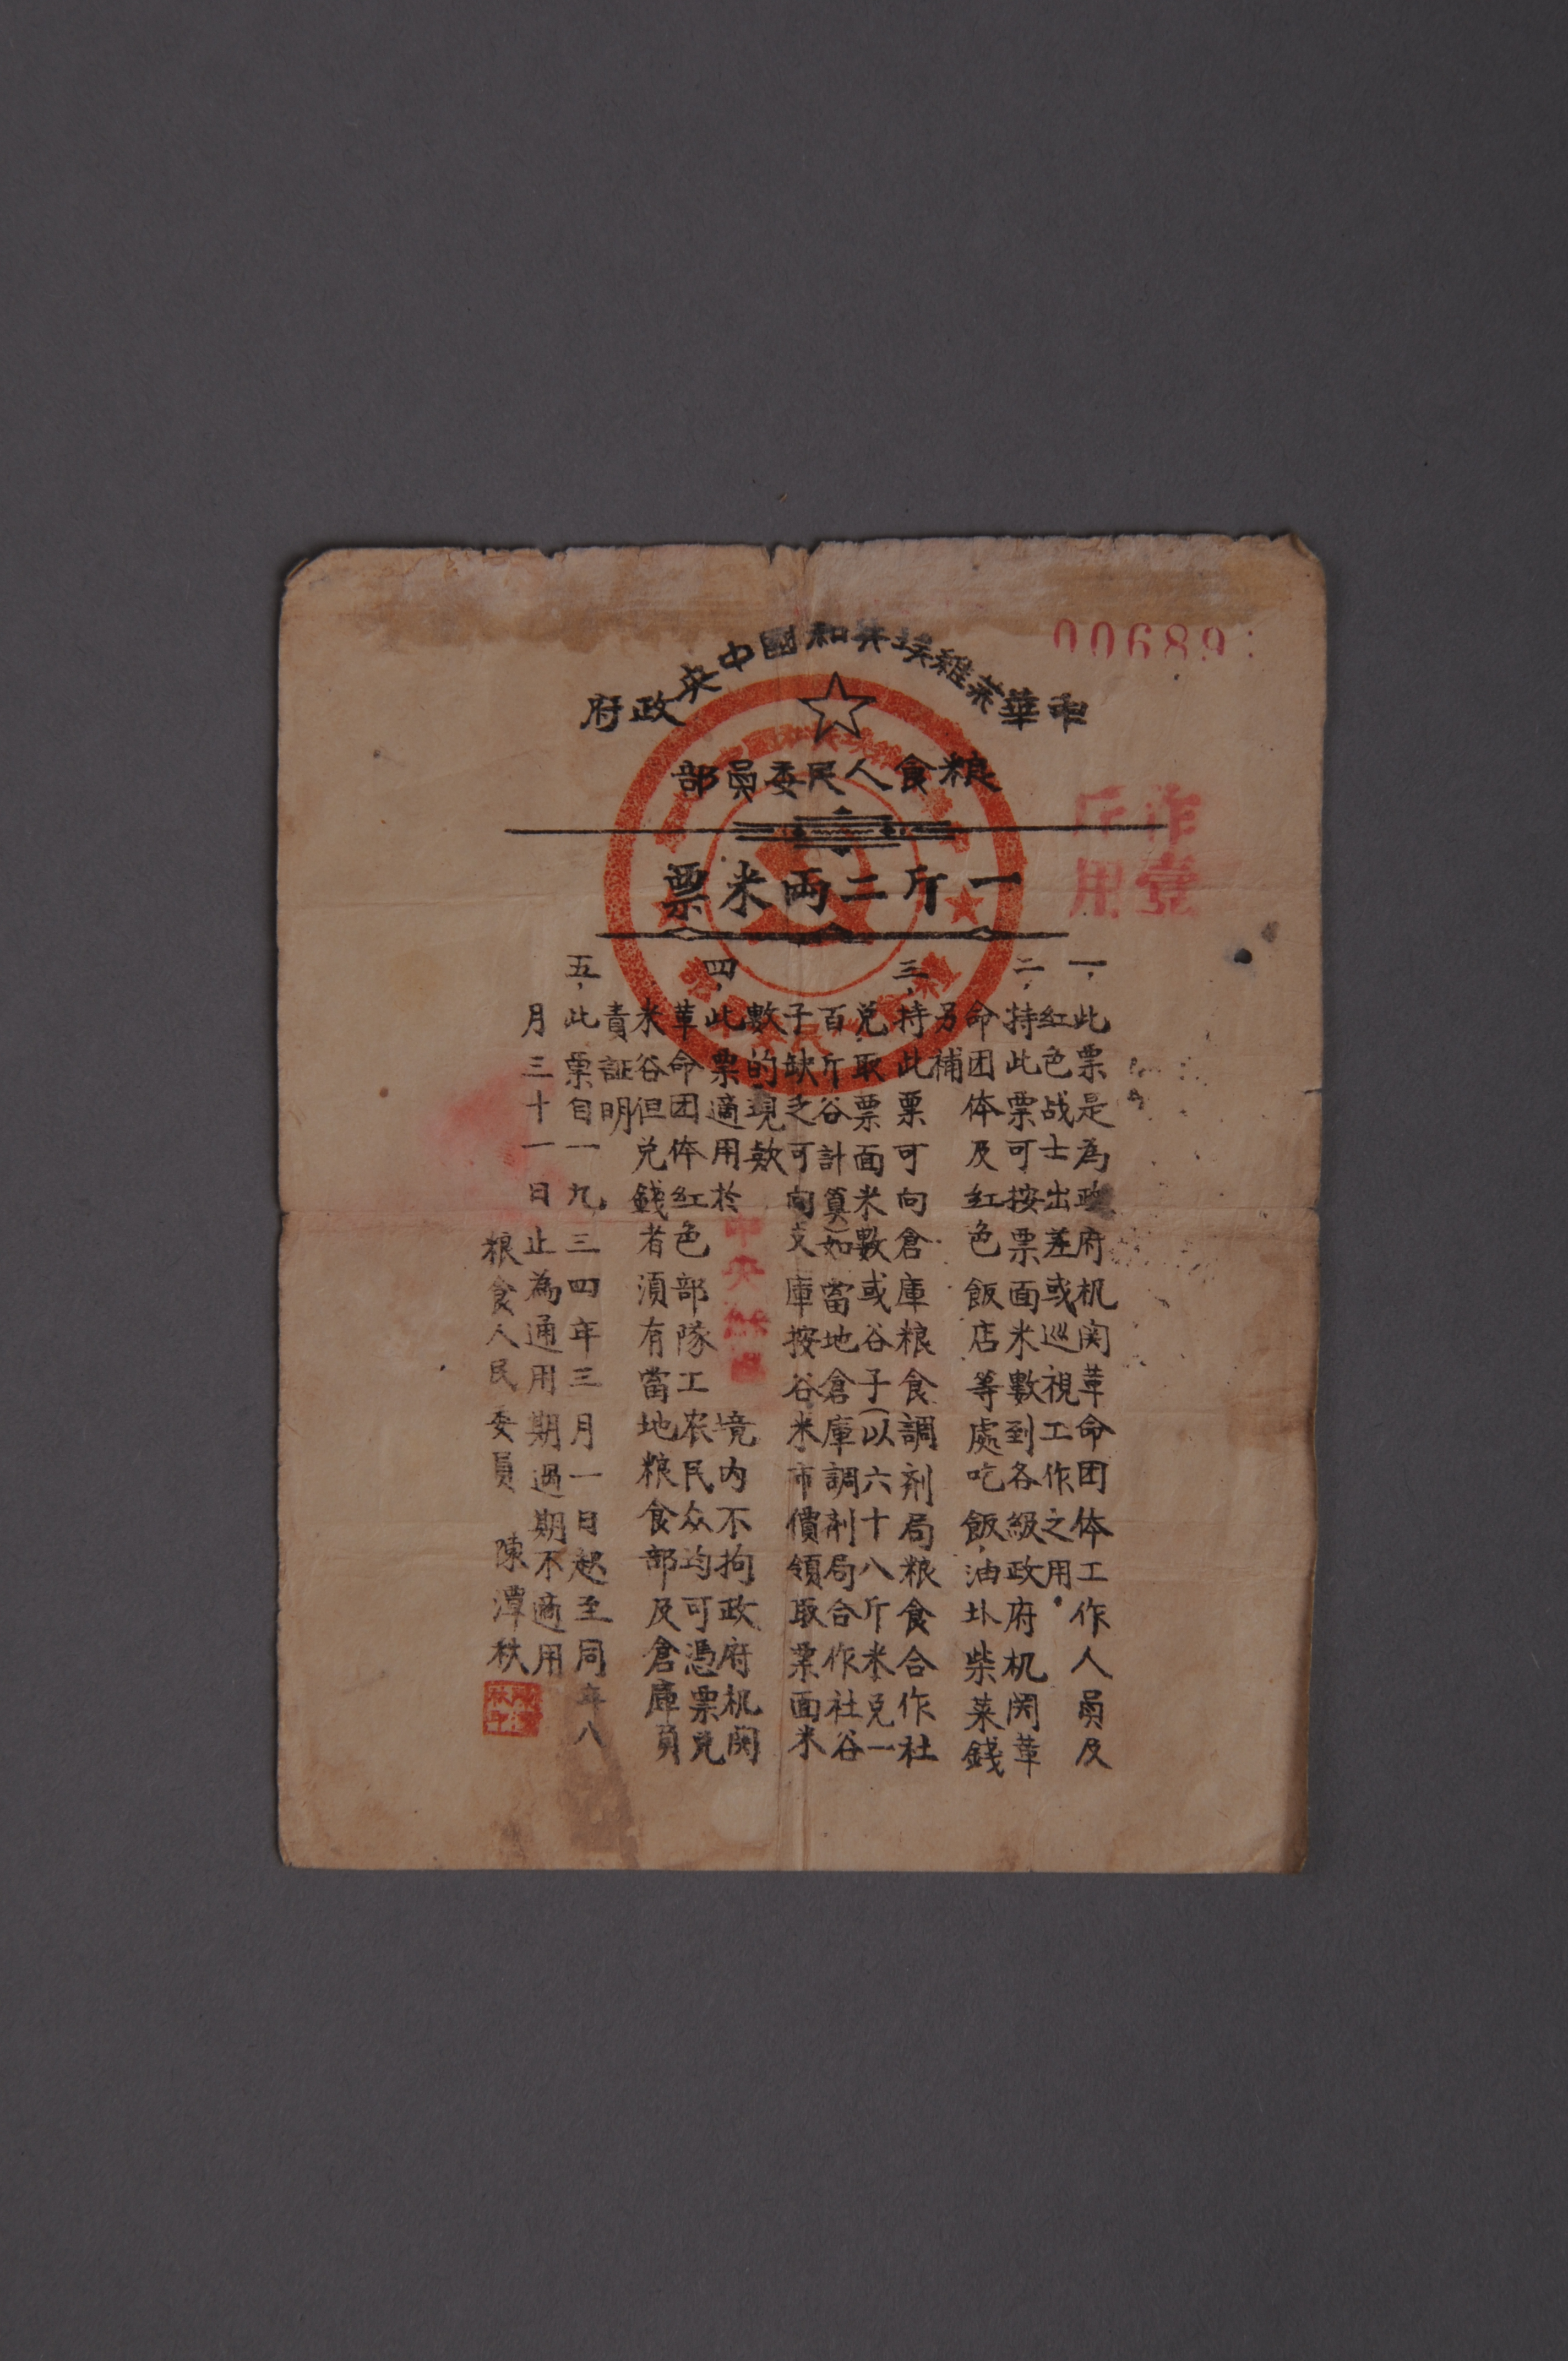 00689
中華蘇維埃共和國中央政府
粮食人民委員部
一斤二両米票
作壹
斤用
一，此票是為政府机関革命团体工作人員及
紅色战士出差或巡視工作之用。
二，持此票可按票面米數到各級政府机関革
命团体及紅色飯店等處吃飯，油圤柴菜錢
另補
三，持此票可向倉庫粮食調剂局粮食合作社
兑取票面米數或谷子（以六十八斤米兑一
百斤谷計算）如當地倉庫調剂局合作社谷
子缺乏可向支庫按谷米市價領取票面米
數的現欵
四，此票適用於中央蘇區境内不拘政府机関
革命团体紅色部隊工农民众均可憑票兑
米谷但兑錢者須有當地粮食部及倉庫負
責証明
五，此票自一九三四年三月一日起至同年八
月三十一日止為通用期過期不適用
粮食人民委員 陳潭秋